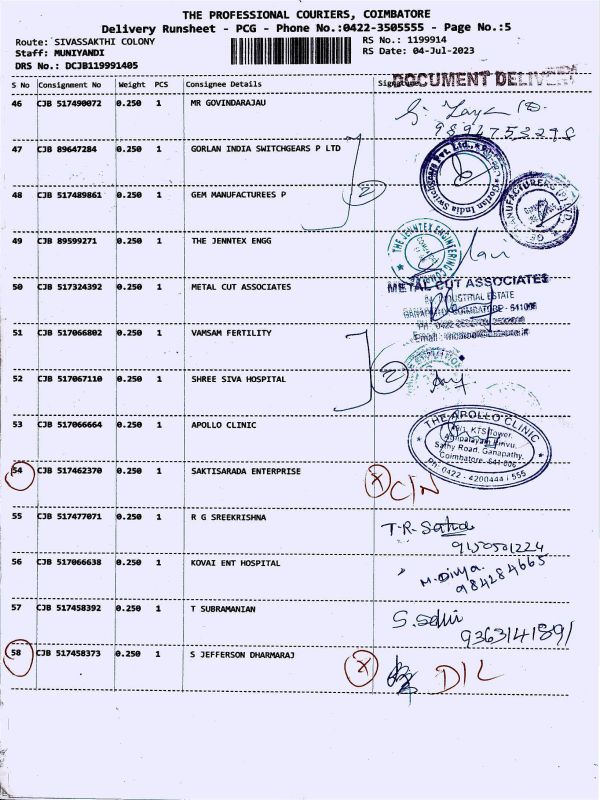 THE PROFESSIONAL COURIERS, COIMBATORE
Delivery Runsheet - PCG - Phone No.:0422-3505555 - Page No.:5
Route: SIVASSAKTHI COLONY
RS No.: 1199914
Staff: MUNIYANDI
RS Date: 04-Jul-2023
DRS No.: DCJB119991405
DOCUMENT DELIVERY
S No Consignment No Weight PCS Consignee Details Signature
46 CJB 517490072 0.250 1 MR GOVINDARAJAU
9894753298
47 CJB 89647284 0.250 1 GORLAN INDIA SWITCHGEARS P LTD
48 CJB 517489861 0.250 1 GEM MANUFACTUREES P
2
49 CJB 89599271 0.250 1 THE JENNTEX ENGG
THE JENNTEX ENGINEERING
50 CJB 517324392 0.250 1 METAL CUT ASSOCIATES
METAL CUT ASSOCIATES
INDUSTRIAL ESTATE
COIMBATORE - 641006
51 CJB 517066802 0.250 1 VAMSAM FERTILITY
52 CJB 517067110 0.250 1 SHREE SIVA HOSPITAL
2
53 CJB 517066664 0.250 1 APOLLO CLINIC
THE APOLLO CLINIC
KTS Tower,
Sathy Road, Ganapathy,
Coimbatore. 641 006
Ph: 0422 - 4200444 / 555
54 CJB 517462370 0.250 1 SAKTISARADA ENTERPRISE X C/N
55 CJB 517477071 0.250 1 R G SREEKRISHNA
T.R.
9150501224
56 CJB 517066638 0.250 1 KOVAI ENT HOSPITAL
M. Divya.
984284665
57 CJB 517458392 0.250 1 T SUBRAMANIAN
9363141891
58 CJB 517458373 0.250 1 S JEFFERSON DHARMARAJ X D/L